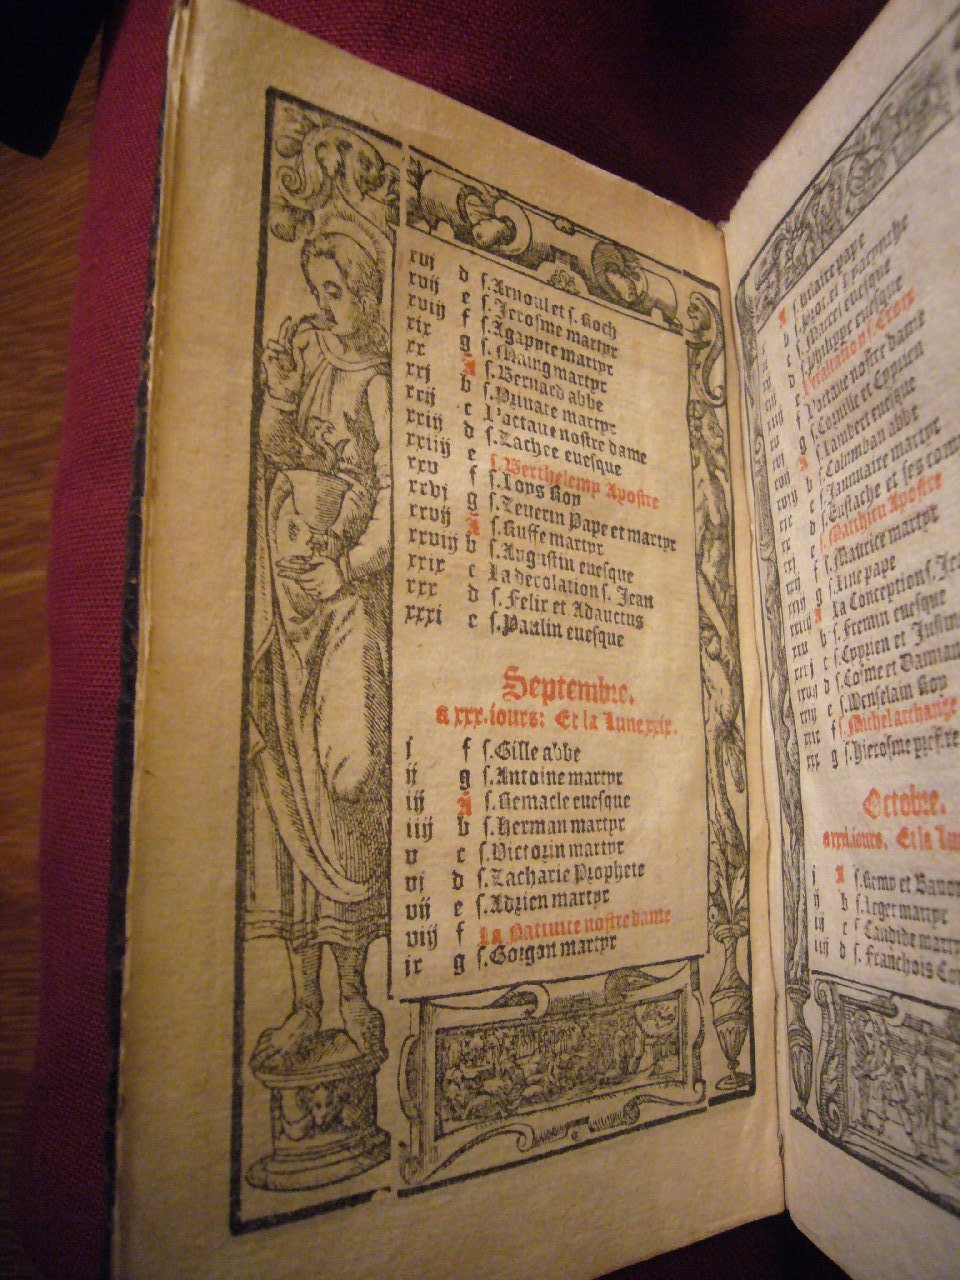 xvj d s. Arnoul et s. Roch
xvij e s. Jerosme martyr
xviij f s. Agapyte martyr
xix g s. Maing martyr
xx A s. Bernard abbe
xxj b s. Privare martyr
xxij c l'octave nostre dame
xxiij d s. Zachee evesque
xxiiij e s. Berthelemy Apostre
xxv f s. Loys Roy
xxvj g s. Zeverin Pape et martyr
xxvij A s. Ruffe martyr
xxviij b s. Augustin evesque
xxix c La decolation s. Jean
xxx d s. Felix et Adauctus
xxxi e s. Paulin evesque
Septembre.
a xxx. jours: Et la Lune xxix.
j f s. Gille abbe
ij g s. Antoine martyr
iij A s. Remacle evesque
iiij b s. Herman martyr
v c s. Victorin martyr
vj d s. Zacharie Prophete
vij e s. Adrien martyr
viij f La Nativite nostre dame
ix g s. Gorgon martyr
A s. Hilaire pape
b s. Prot. et s. Hyacinthe
c s. Marcel evesque
d s. Philippe evesque
e l'exaltation s. Croix
f L'octave nostre dame
g s. Cornille et Cyprien
A s. Lambert evesque
b s. Colomban abbe
c s. Januaire martyr
d s. Eustache et ses com
e s. Matthieu Apostre
f s. Maurice martyr
g s. Line pape
A La Conception s. Jea
b s. Fremin evesque
c s. Cyprien et Justin
d s. Cosme et Damian
e s. Wenselain Roy
f s. Michel archange
xxx g s. Hierosme prestre
Octobre.
a xxxi. jours. Et la Lun
j A s. Remy et Bavon
ij b s. Leger martyr
iij c s. Candide marty
iiij d s. Franchois Co